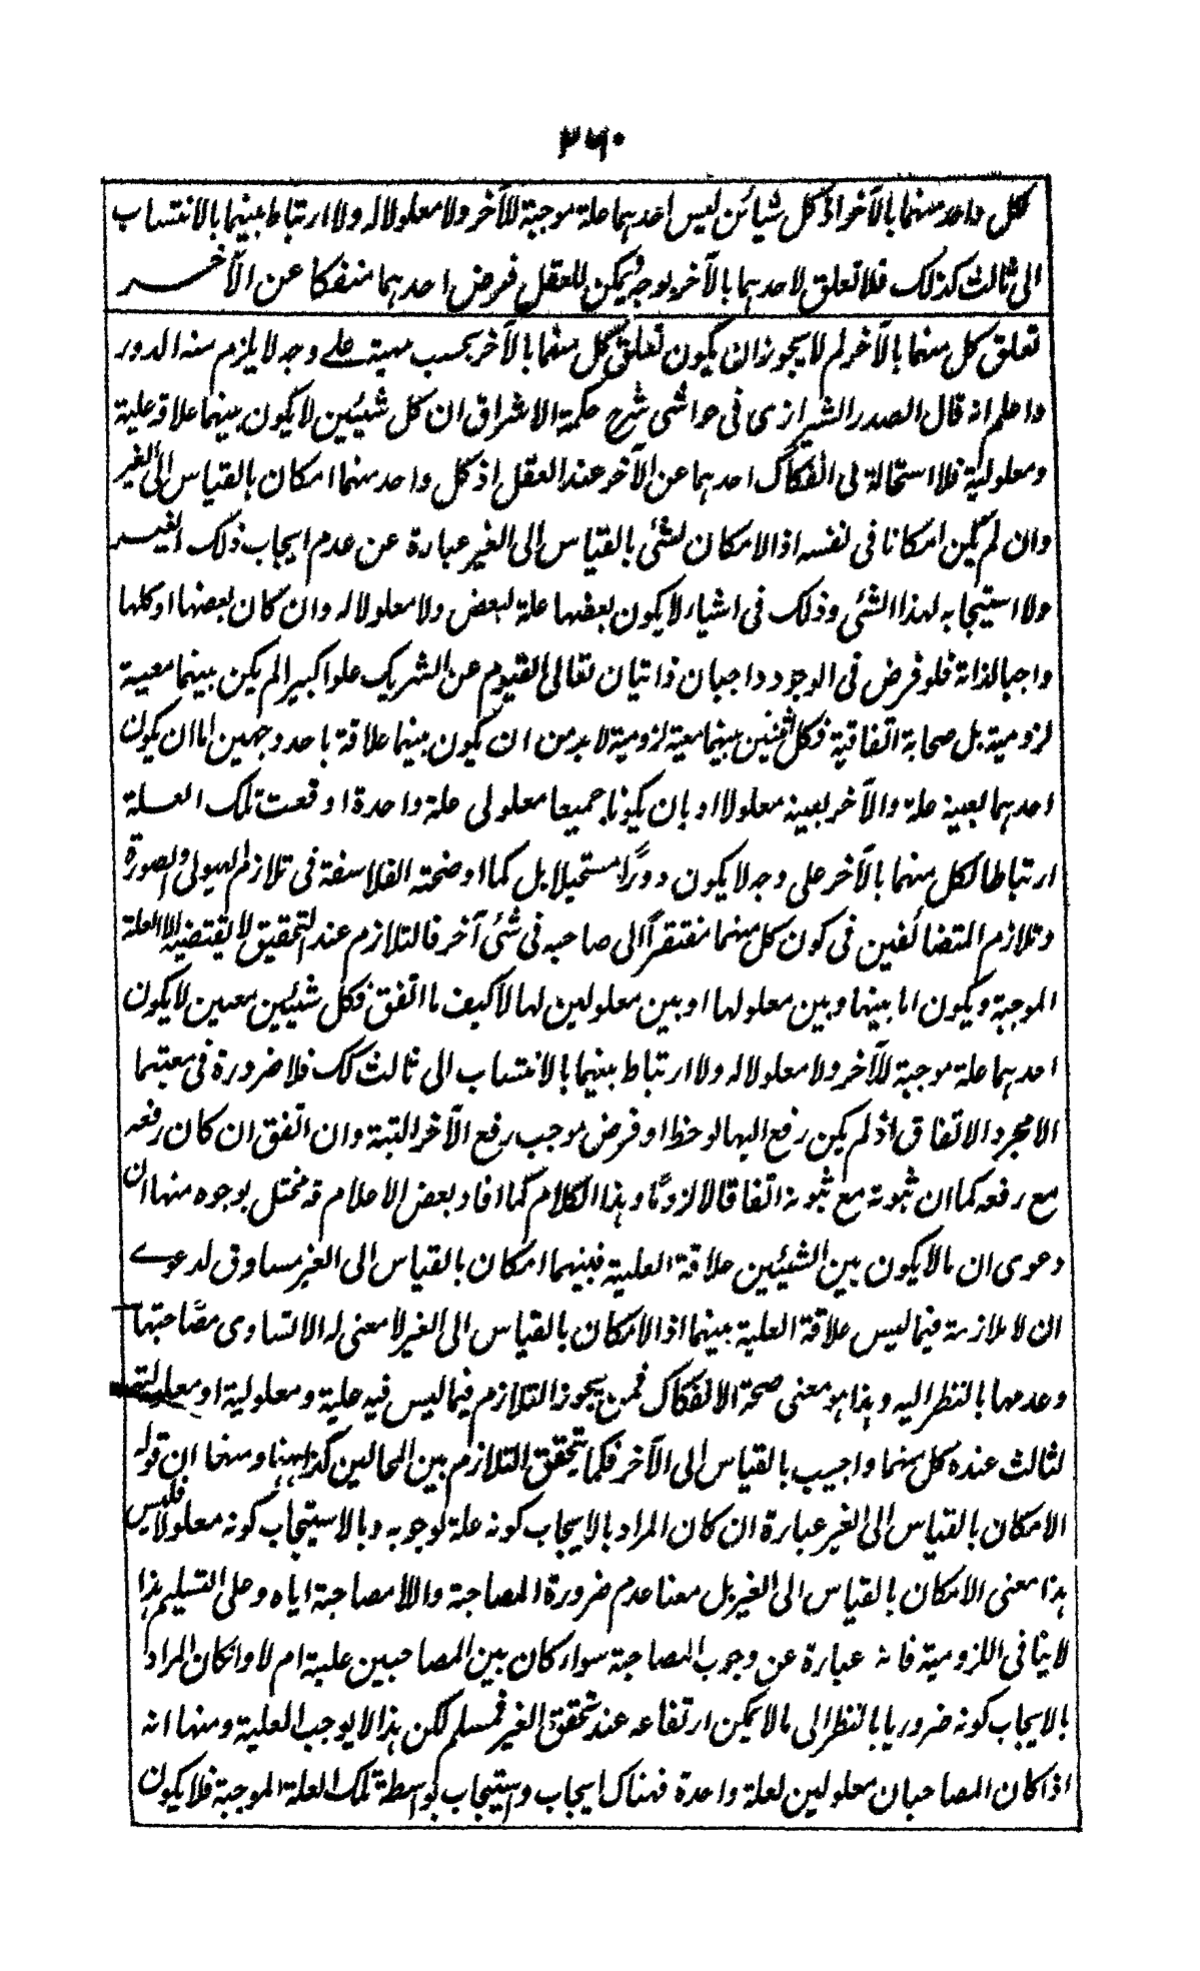 ٢٦٠
لكل واحد منهما بالآخر اذ كل شيائن ليس احدهما علة موجبة للآخر ولا معلولا له ولا ارتباط بينهما بالانتساب
الى ثالث كذلك فلا تعلق لاحدهما بالآخر بوجه ويمكن للعقل فرض احدهما منفكا عن الآخر
تعلق كل منهما بالآخر لم لا يجوز ان يكون تعلق كل منهما بالآخر بحسب مهية على وجه لا يلزم منه الدور
واعلم انه قال الصدر الشيرازى فى حواشى شرح حكمة الاشراق ان كل شيئين لا يكون بينهما علاقة علية
ومعلولية فلا استحالة فى انفكاك احدهما عن الآخر عند العقل اذ كل واحد منهما امكان بالقياس الى الغير
وان لم يكن امكانا فى نفسه اذ الامكان لشئ بالقياس الى الغير عبارة عن عدم ايجاب ذلك الغير
ولا استيجابه لهذا الشئ وذلك فى اشياء لا يكون بعضها علة لبعض ولا معلولا له وان كان بعضها او كلها
واجبا لذاته فلو فرض فى الوجود واجبان ذاتيان تعالى القيوم عن الشريك علوا كبيرا لم يكن بينهما معية
لزومية بل صحابة اتفاقية فكل اثنين بينهما معية لزومية لا بد من ان يكون بينهما علاقة باحد وجهين اما ان يكون
احدهما بعينه علة والآخر بعينه معلولا او بان يكونا جميعا معلولى علة واحدة اوقعت تلك العلة
ارتباطا لكل منهما بالآخر على وجه لا يكون دورًا مستحيلا بل كما اوضحته الفلاسفة فى تلازم الهيولى والصورة
وتلازم المتضائفين فى كون كل منهما مفتقرًا الى صاحبه فى شئ آخر فالتلازم عند التحقيق لا يقتضيه الا العلة
الموجبة ويكون اما بينها وبين معلولها او بين معلولين لها لا كيف ما اتفق فكل شيئين معين لا يكون
احدهما علة موجبة للآخر ولا معلولا له ولا ارتباط بينهما بالانتساب الى ثالث كك فلا ضرورة فى معيتهما
الا مجرد الاتفاق اذ لم يكن رفع ايهما لوحظ او فرض موجب رفع الآخر البتة وان اتفق ان كان رفعه
مع رفعه كما ان ثبوته مع ثبوته اتفاقا لا لزومًا وهذا الكلام كما افاد بعض الاعلام قه مختل بوجوه منها ان
دعوى ان ما لا يكون بين الشيئين علاقة العلية فبينهما امكان بالقياس الى الغير مساوق لدعوے
ان لا ملازمة فيما ليس علاقة العلية بينهما اذ الامكان بالقياس الى الغير لا معنى له الا تساوى مصاحبتها
وعدمها بالنظر اليه وهذا هو معنى صحة الانفكاك فمن يجوز التلازم فيما ليس فيه علية ومعلولية او معلولية
لثالث عنده كل منهما واجب بالقياس الى الآخر فكما يتحقق التلازم بين المحالين كذا ههنا ومنها ان قوله
الامكان بالقياس الى الغير عبارة ان كان المراد بالايجاب كونه علة لوجوبه وبالاستيجاب كونه معلولا فليس
هذا معنى الامكان بالقياس الى الغير بل معناه عدم ضرورة المصاحبة واللامصاحبة اياه وعلى التسليم هذا
لا ينافى اللزومية فانه عبارة عن وجوب المصاحبة سواء كان بين المصاحبين علية ام لا وان كان المراد
بالايجاب كونه ضروريا بالنظر الى ما لا يمكن ارتفاعه عند تحقق الغير فمسلم لكن هذا لا يوجب العلية ومنها انه
اذا كان المصاحبان معلولين لعلة واحدة فهناك ايجاب واستيجاب بواسطة تلك العلة الموجبة فلا يكون